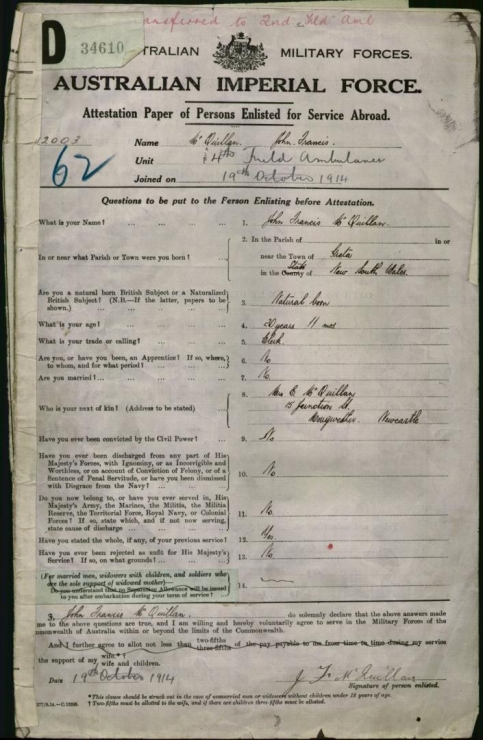 transferred to 2nd Fld Amb
D 34610
AUSTRALIAN MILITARY FORCES.
AUSTRALIAN IMPERIAL FORCE.
Attestation Paper of Persons Enlisted for Service Abroad.
12003
62
Name McQuillan. John Francis.
Unit 4th Field Ambulance
Joined on 19th October 1914
Questions to be put to the Person Enlisting before Attestation.
What is your Name? ... ... ... 1. John Francis McQuillan.
2. In the Parish of in or
In or near what Parish or Town were you born? near the Town of Greta
in the County of State New South Wales.
Are you a natural born British Subject or a Naturalized
British Subject? (N.B.—If the latter, papers to be
shown.) 3. Natural born
What is your age? 4. 20 years 11 mos
What is your trade or calling? 5. Clerk.
Are you, or have you been, an Apprentice? If so, where,
to whom, and for what period? 6. No
Are you married? 7. No.
Who is your next of kin? (Address to be stated) 8. Mrs E. McQuillan
15 Junction St.
Newcastle
Have you ever been convicted by the Civil Power? 9. No.
Have you ever been discharged from any part of His
Majesty's Forces, with Ignominy, or as Incorrigible and
Worthless, or on account of Conviction of Felony, or of a
Sentence of Penal Servitude, or have you been dismissed
with Disgrace from the Navy? 10. No.
Do you now belong to, or have you ever served in, His
Majesty's Army, the Marines, the Militia, the Militia
Reserve, the Territorial Force, Royal Navy, or Colonial
Forces? If so, state which, and if not now serving,
state cause of discharge 11. No.
Have you stated the whole, if any, of your previous service? 12. Yes.
Have you ever been rejected as unfit for His Majesty's
Service? If so, on what grounds? 13. No
(For married men, widowers with children, and soldiers who
are the sole support of widowed mother)—
Do you understand that no Separation Allowance will be issued
to you after embarkation during your term of service? 14.
3. John Francis McQuillan. do solemnly declare that the above answers made
me to the above questions are true, and I am willing and hereby voluntarily agree to serve in the Military Forces of the
Commonwealth of Australia within or beyond the limits of the Commonwealth.
And I further agree to allot not less than two-fifths three-fifths of the pay payable to me from time to time during my service
the support of my wife.*† wife and children.
Date 19th October 1914 J F McQuillan
Signature of person enlisted.
*This clause should be struck out in the case of unmarried men or widowers without children under 18 years of age.
† Two-fifths must be allotted to the wife, and if there are children three-fifths must be allotted.